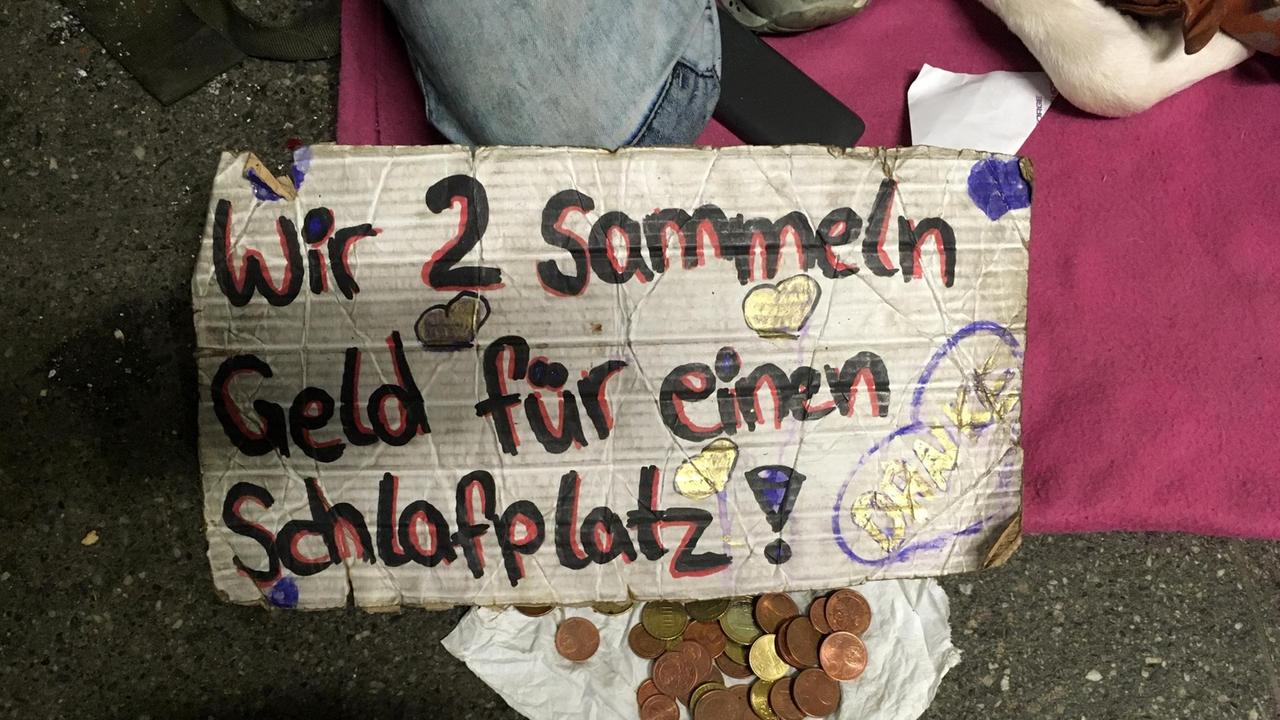 Wir 2 Sammeln
Geld für einen
Schlafplatz!
DANKE